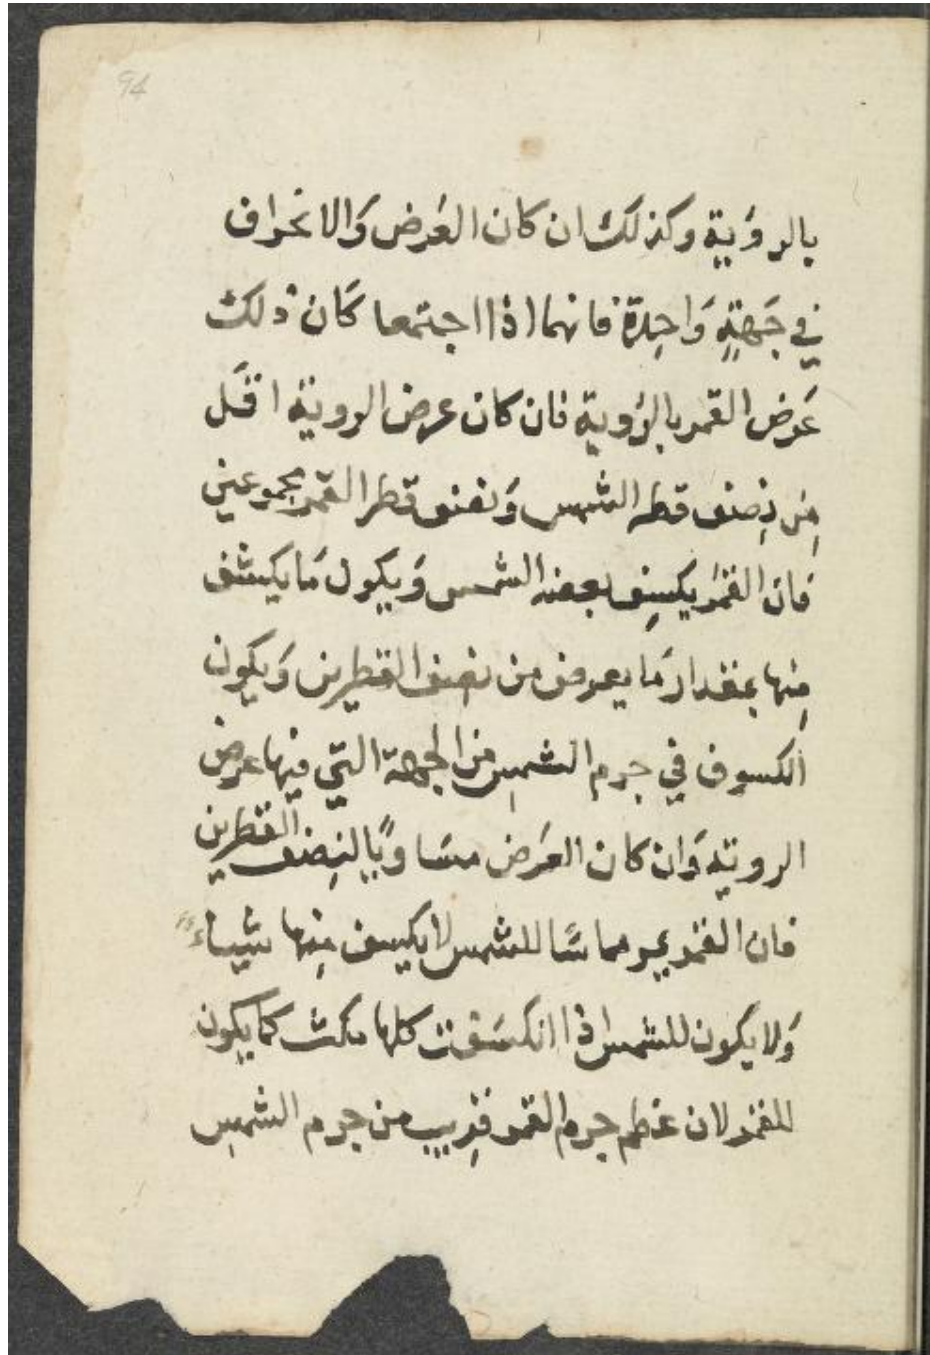 94
بالروَية وكذلك ان كان العَرض وَالانحراف
في جَهةٍ وَاحِدة فانهما اذا اجتمعا كَان ذلك
عَرض القمر بالرُوية فان كان عرض الروية اقَل
مِن نِصف قطر الشمس وَنصف قطر القمر مجموعين
فان القمَر يكسِف بعض الشمس وَيكون مَا يكسف
مِنها بمقدار مَا يعرض من نصف القطرين وَيكون
الكسوف في جرم الشمس من الجهة التي فيها عرض
الروية وَان كان العَرض مسَاويًا لنِصف القطرين
فان القمر يمر مماسًا للشمس لا يكسف مِنها شياء
وَلا يكون للشمس اذا انكسَفت كلها مكث كما يكون
للقمر لان عظم جرم القمر قرِيب من جرم الشمس